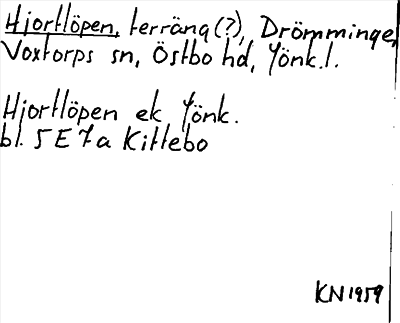 Hjortlöpen, terräng (?), Drömminge,
Voxtorps sn, Östbo hd, Jönk. l.
Hjortlöpen ek Jönk.
bl. 5 E 7 a Kittebo
KN 1959